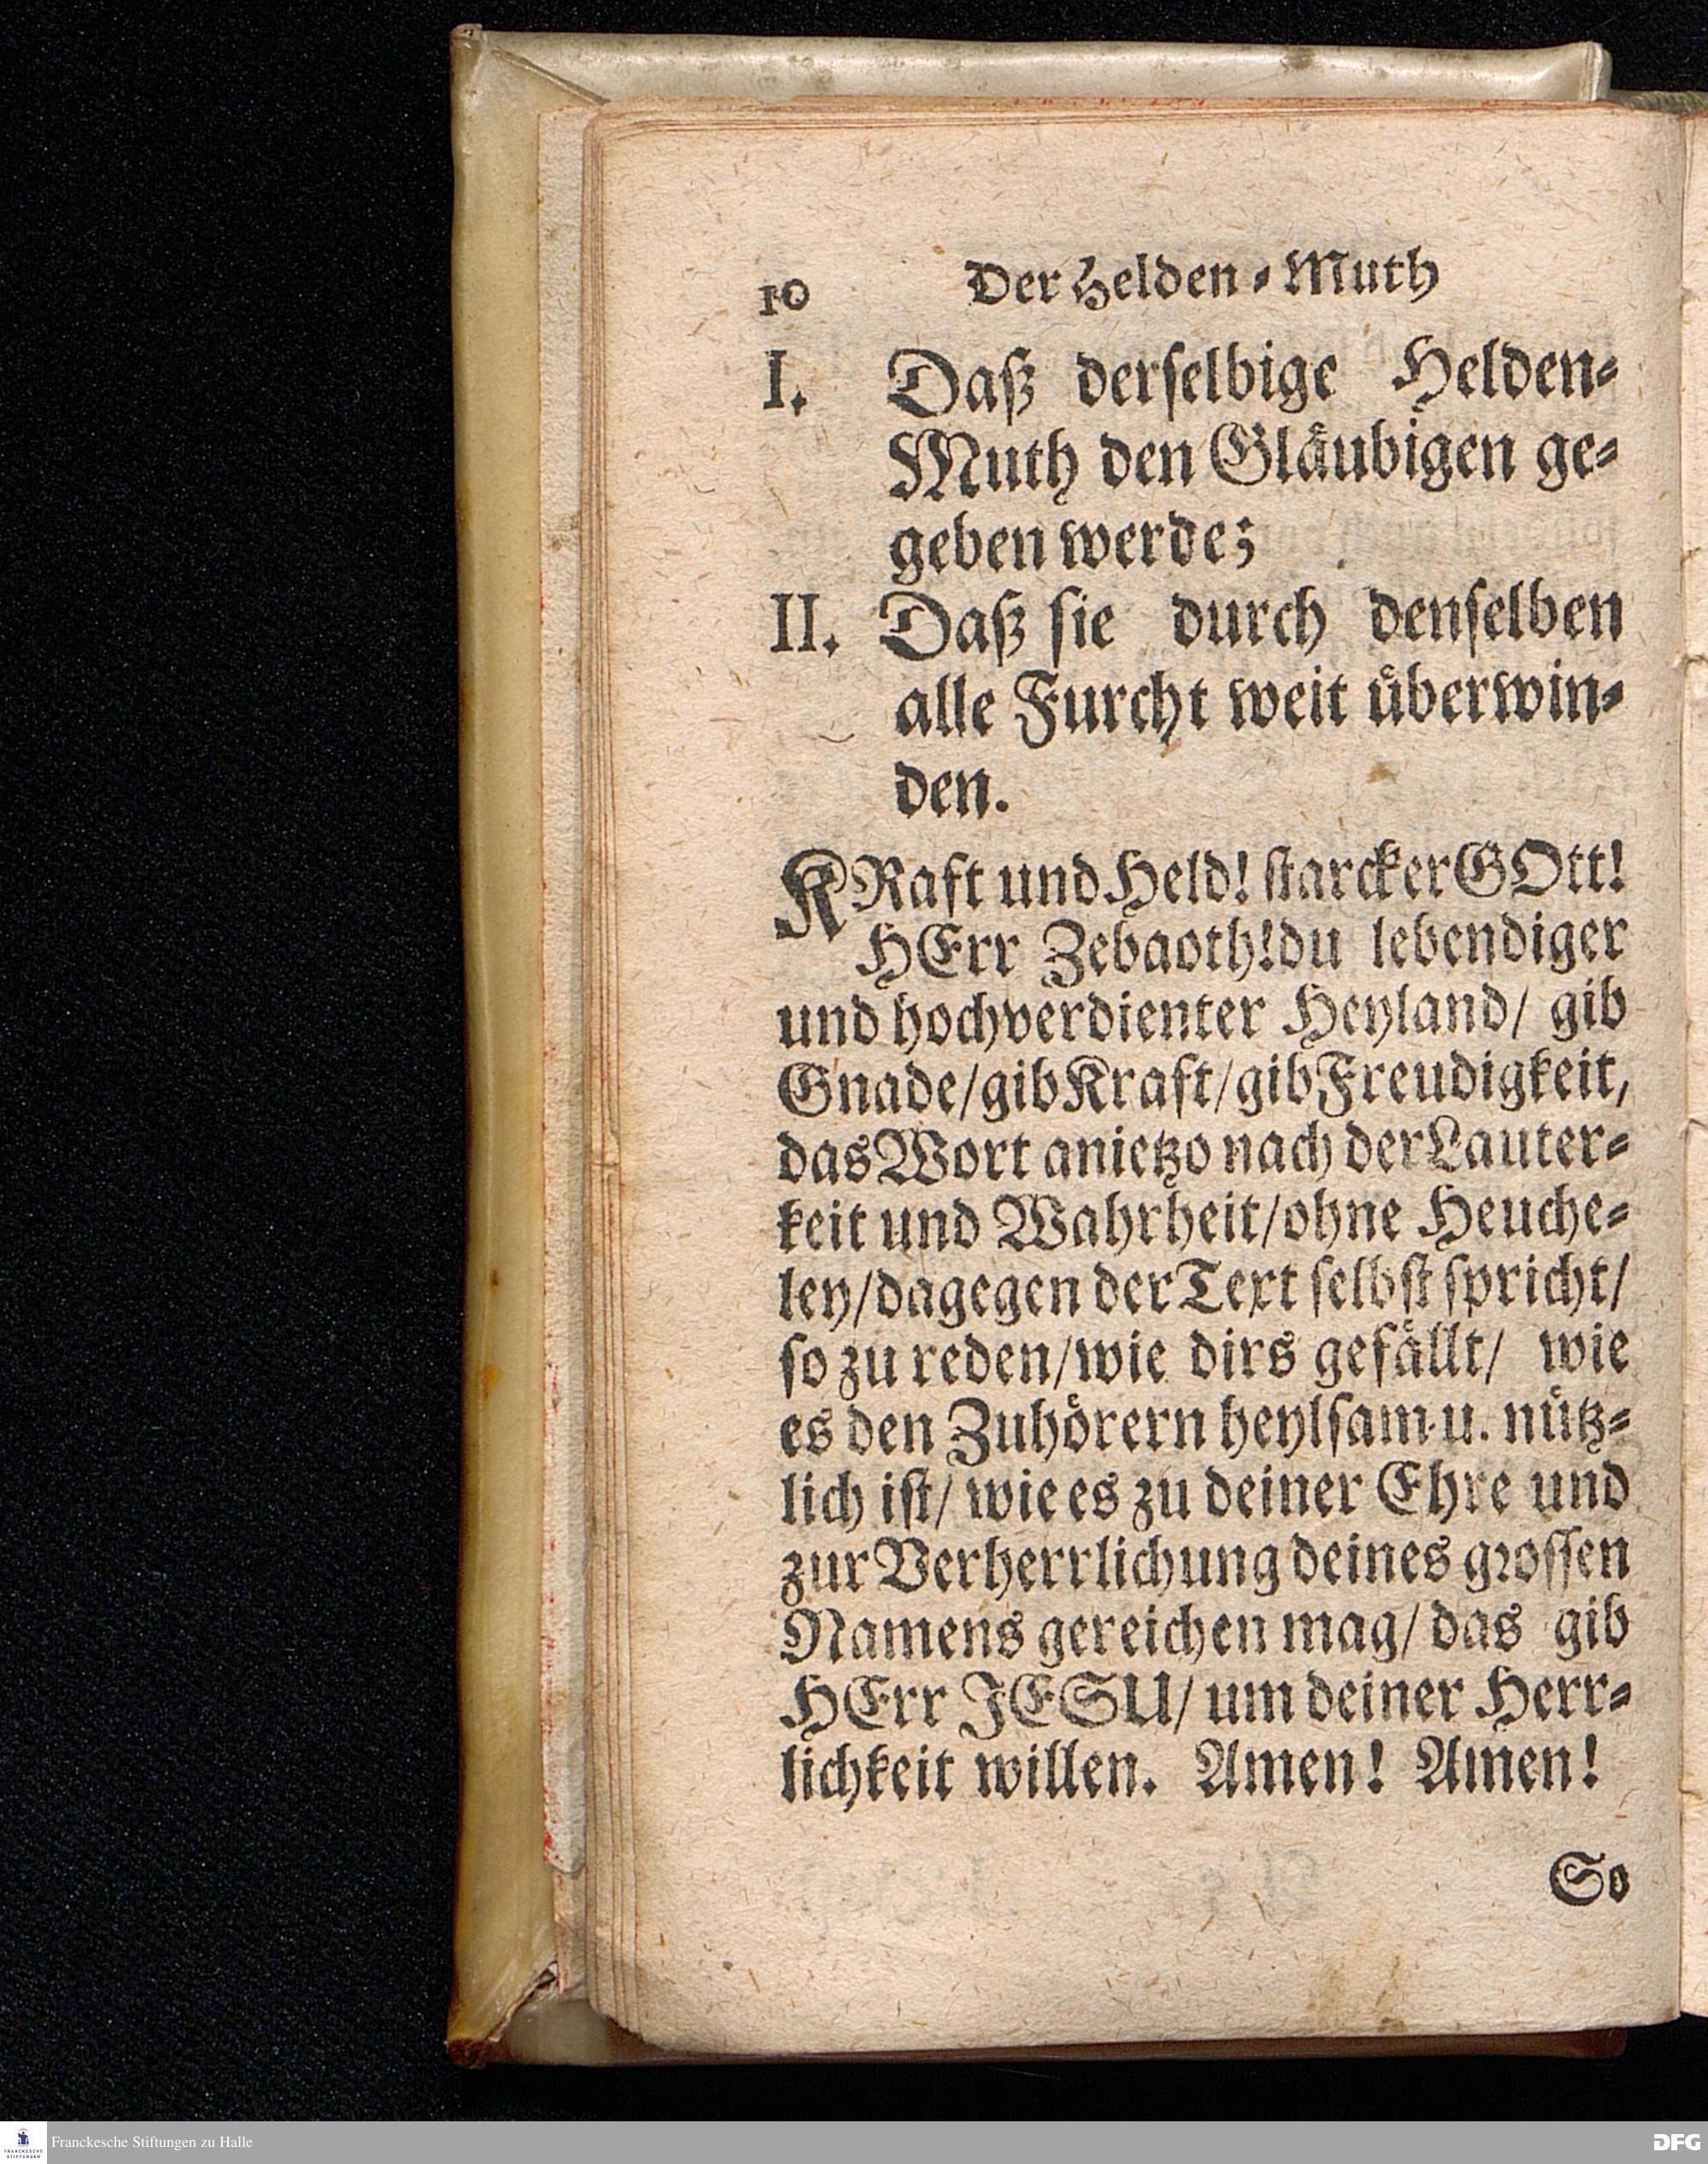 10 Der Helden-Muth
I. Daß derselbige Helden-
Muth den Gläubigen ge-
geben werde;
II. Daß sie durch denselben
alle Furcht weit überwin-
den.
KRaft und Held! starcker GOtt!
HErr Zebaoth! du lebendiger
und hochverdienter Heyland/ gib
Gnade/gib Kraft/gib Freudigkeit,
das Wort anietzo nach der Lauter-
keit und Wahrheit/ohne Heuche-
ley/dagegen der Text selbst spricht/
so zu reden/wie dirs gefällt/ wie
es den Zuhörern heylsam u. nütz-
lich ist/ wie es zu deiner Ehre und
zur Verherrlichung deines grossen
Namens gereichen mag/ das gib
HErr JESU/ um deiner Herr-
lichkeit willen. Amen! Amen!
So
FRANCKESCHE STIFTUNGEN
Franckesche Stiftungen zu Halle
DFG